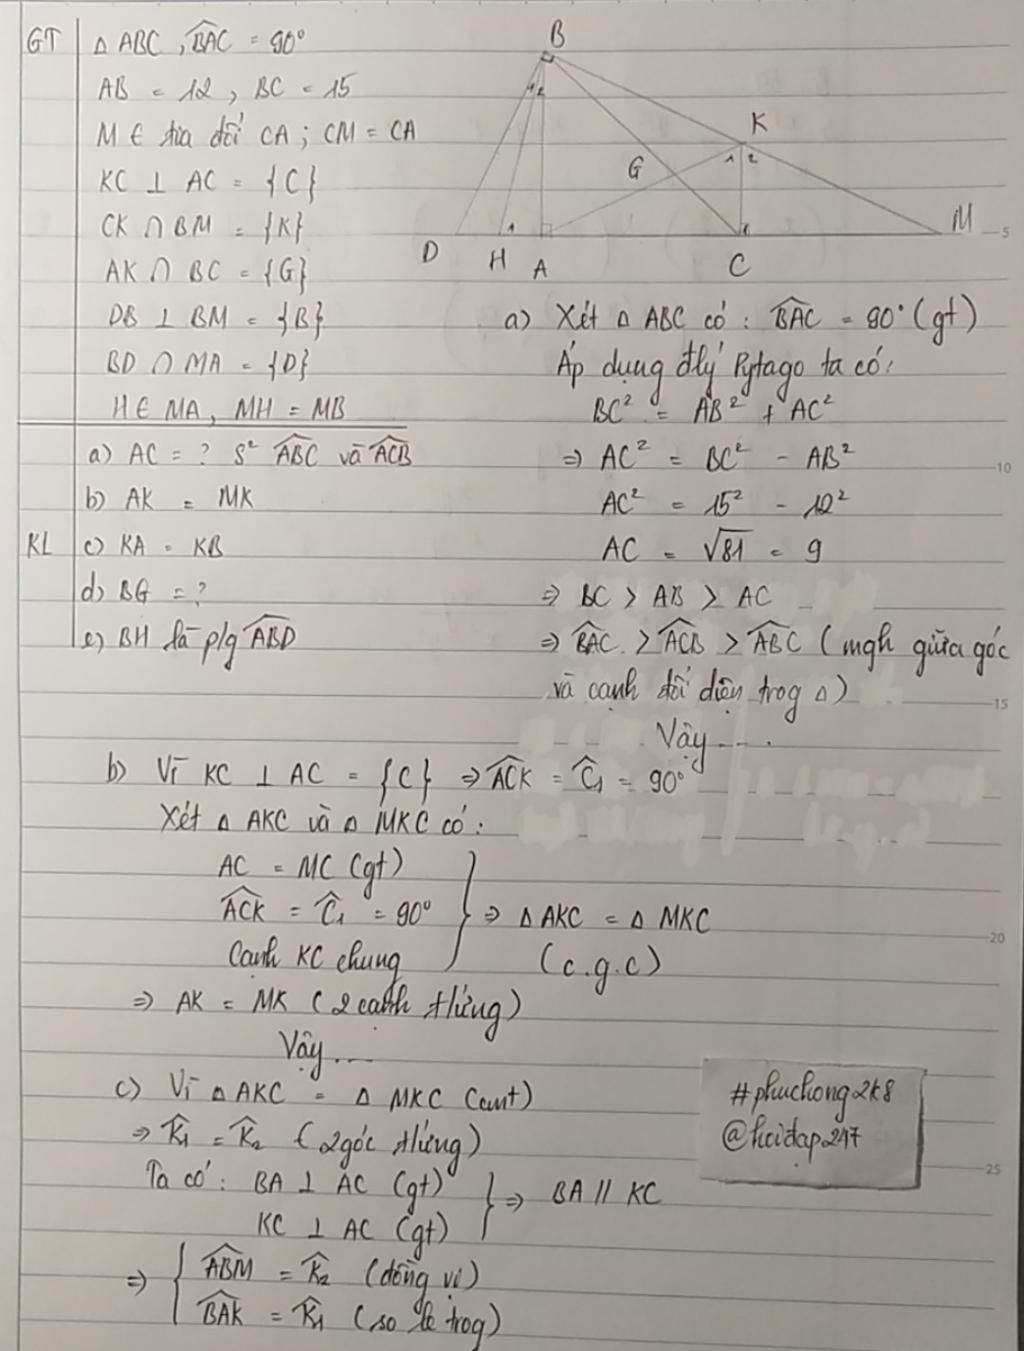 GT
△ ABC, \widehat{BAC} = 90°
AB = 12, BC = 15
M ∈ tia đối CA; CM = CA
KC ⊥ AC = {C}
CK ∩ BM = {K}
AK ∩ BC = {G}
DB ⊥ BM = {B}
BD ∩ MA = {D}
H ∈ MA, MH = MB
KL
a) AC = ? S² \widehat{ABC} và \widehat{ACB}
b) AK = MK
c) KA = KB
d) BG = ?
e) BH là p/g \widehat{ABD}
B
1 2
K
1 2
G
M
1
1
D H A C
5
a) Xét △ ABC có: \widehat{BAC} = 90° (gt)
Áp dụng đlý Pytago ta có:
BC² = AB² + AC²
⇒ AC² = BC² - AB²
10
AC² = 15² - 12²
AC = √81 = 9
⇒ BC > AB > AC
⇒ \widehat{BAC} > \widehat{ACB} > \widehat{ABC} (mqh giữa góc
và cạnh đối diện trog △)
15
Vậy ....
b) Vì KC ⊥ AC = {C} ⇒ \widehat{ACK} = \widehat{C₁} = 90°
Xét △ AKC và △ MKC có:
AC = MC (gt)
\widehat{ACK} = \widehat{C₁} = 90° } ⇒ △ AKC = △ MKC
20
Cạnh KC chung (c.g.c)
⇒ AK = MK (2 cạnh tứng)
Vậy ....
c) Vì △ AKC = △ MKC (cmt)
⇒ \widehat{K₁} = \widehat{K₂} (2 góc tứng)
#phuchong2k8
@hoidap247
25
Ta có: BA ⊥ AC (gt) } ⇒ BA // KC
KC ⊥ AC (gt)
⇒ { \widehat{ABM} = \widehat{K₂} (đồng vị)
\widehat{BAK} = \widehat{K₁} (so le trog)